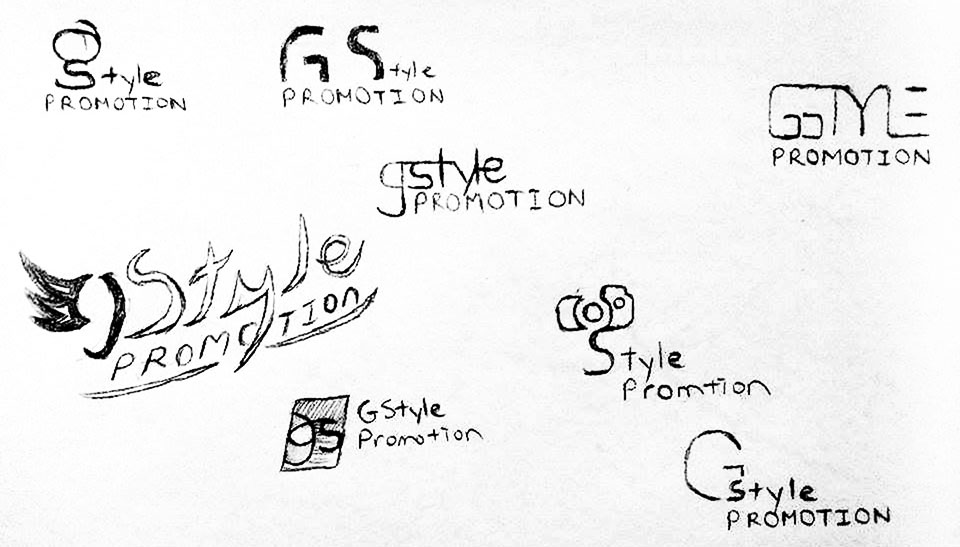 gstyle
PROMOTION
GStyle
PROMOTION
GSTYLE
PROMOTION
gstyle
PROMOTION
gStyle
PROMOTION
Style
Promtion
gs
GStyle
Promotion
Gstyle
PROMOTION